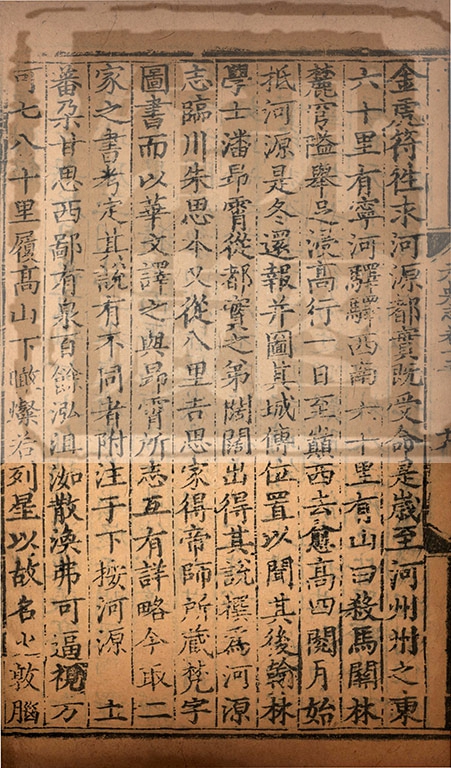 金虎符往求河源都實既受命是歲至河州州之東
六十里有寧河驛驛西南六十里有山曰殺馬關林
麓穹隘舉足浸高行一日至巔西去愈高四閱月始
抵河源是冬還報并圖其城傳位置以聞其後翰林
學士潘昻霄從都實之弟闊闊出得其說撰爲河源
志臨川朱思本又從八里吉思家得帝師所藏梵字
圖書而以華文譯之與昻霄所志互有詳略今取二
家之書考定其說有不同者附注于下按河源 土
蕃朶甘思西鄙有泉百餘泓沮洳散渙弗可逼視方
可七八十里履高山下瞰燦若列星以故名火敦腦